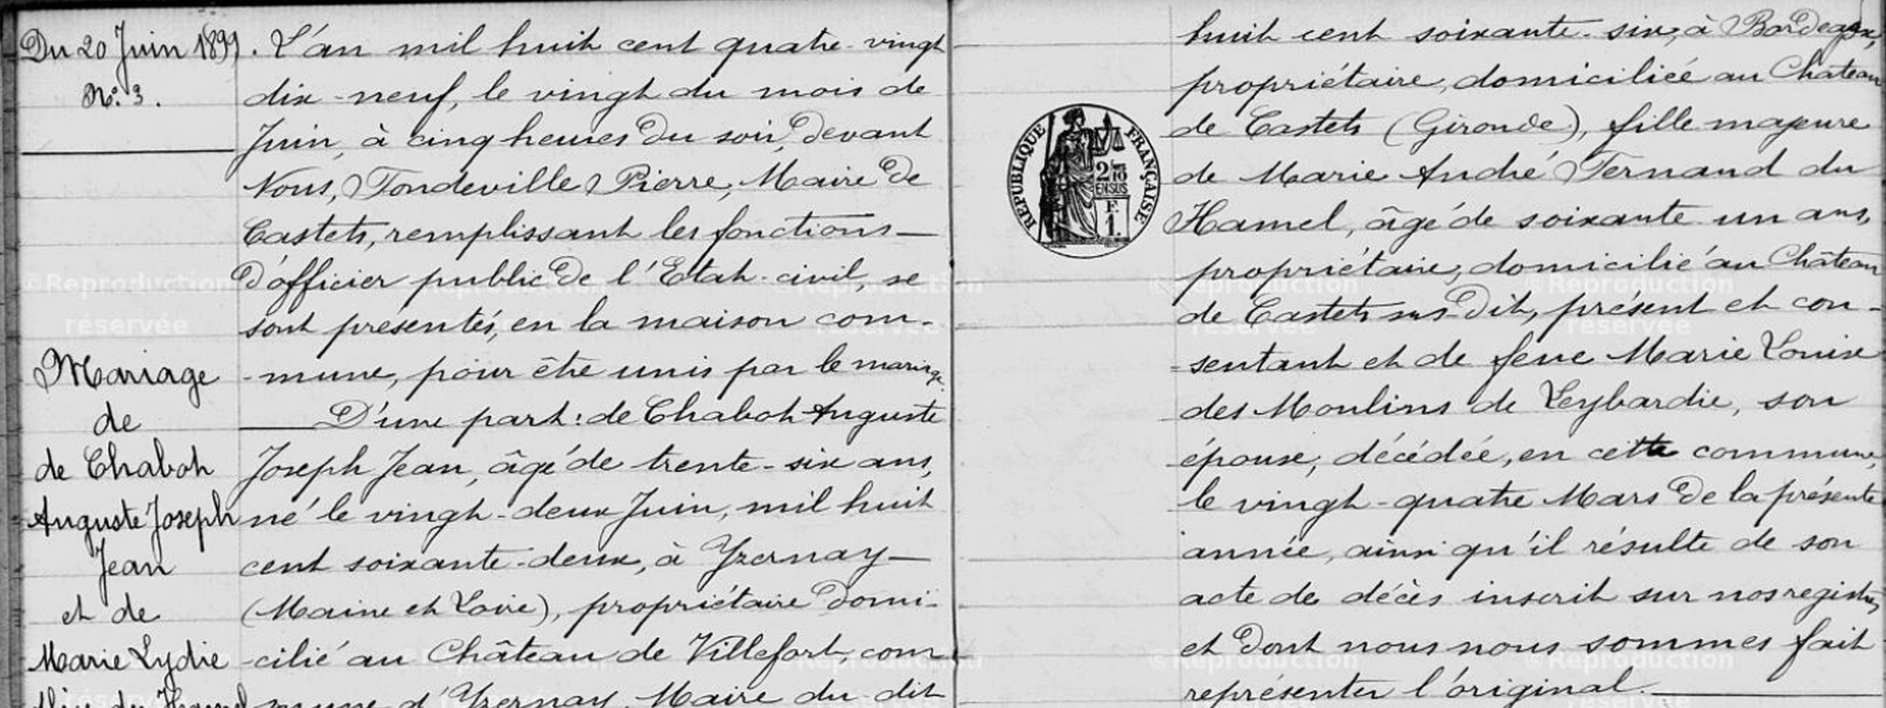 Du 20 Juin 1899.
N.º 3.
Mariage
de
de Chabot
Auguste Joseph
Jean
et de
Marie Lydie
Alice du Hamel
L'an mil huit cent quatre-vingt
dix-neuf, le vingt du mois de
Juin, à cinq heures du soir, devant
Nous, Tondeville Pierre, Maire de
Castets, remplissant les fonctions
d'officier public de l'Etat-civil, se
sont présentés, en la maison com-
-mune, pour être unis par le mariage.
D'une part: de Chabot Auguste
Joseph Jean, âgé de trente-six ans,
né le vingt-deux Juin, mil huit
cent soixante-deux, à Yzernay
(Maine et Loire), propriétaire domi-
-cilié au Château de Villefort, com
mune d'Yzernay, Maire du dit
huit cent soixante-six, à Bordeaux,
propriétaire, domiciliée au Château
de Castets (Gironde), fille majeure
de Marie André Fernand du
Hamel, âgé de soixante un ans,
propriétaire, domicilié au Château
de Castets sus-dit, présent et con-
-sentant et de feue Marie Louise
des Moulins de Leybardie, son
épouse, décédée, en cette commune,
le vingt-quatre Mars de la présente
année, ainsi qu'il résulte de son
acte de décès inscrit sur nos registres,
et dont nous nous sommes fait
représenter l'original.
RÉPUBLIQUE FRANÇAISE
2/10
EN SUS
F.
1.
©Reproduction
réservée